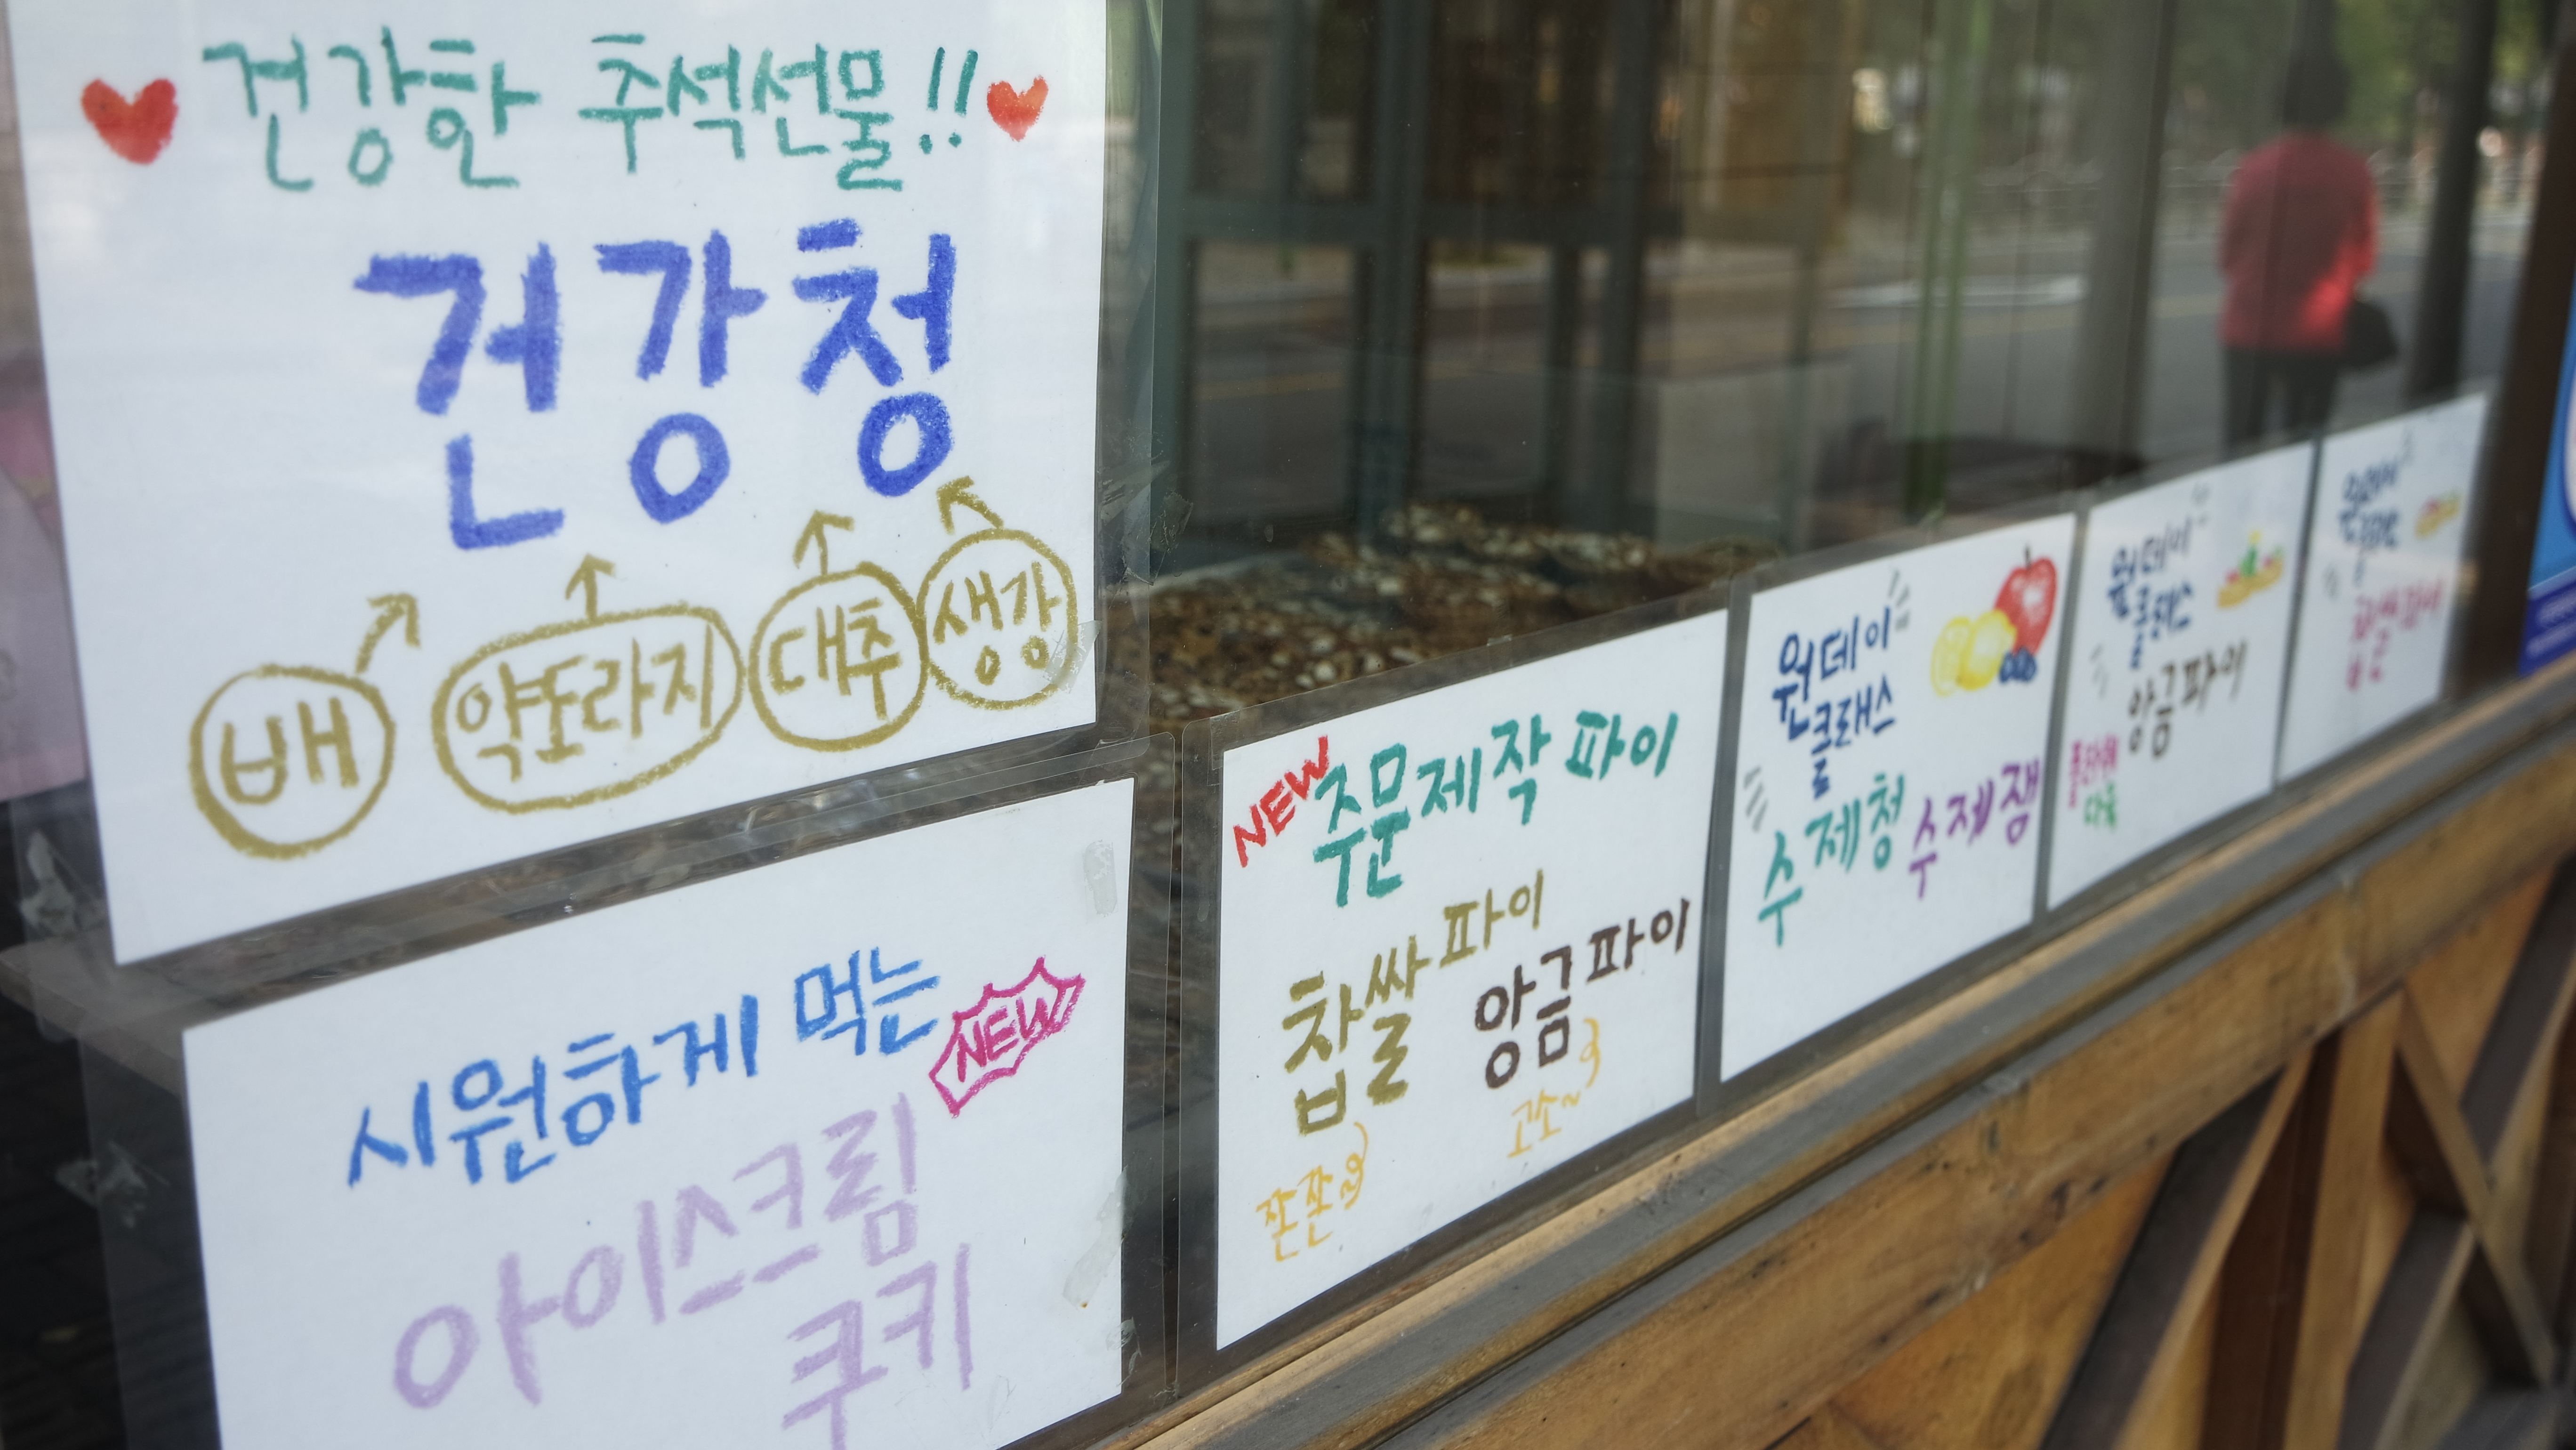 건강한 추석선물!!
건강청
배 약도라지 대추 생강
시원하게 먹는
NEW
아이스크림
쿠키
NEW
주문제작 파이
찹쌀파이
앙금파이
쫀쫀
고소~
원데이
클래스
수제청 수제잼
원데이
클래스
앙금파이
원데이